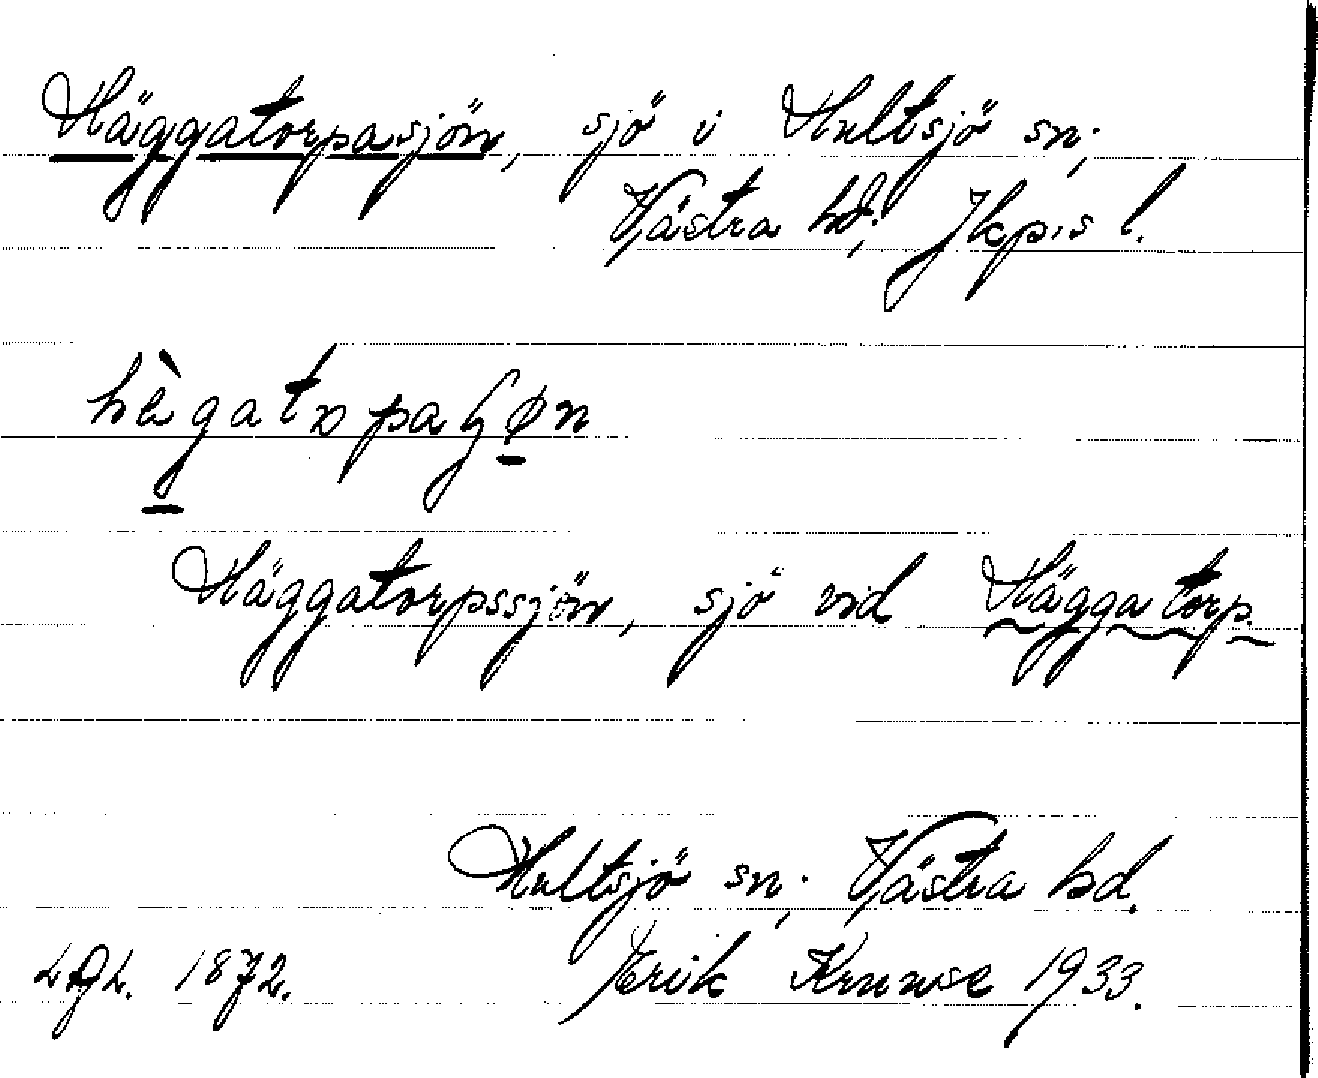 Häggatorpasjön, sjö i Hultsjö sn;
Västra hd; Jkp:s l.
Häggatorpssjön, sjö vid Häggatorp.
Hultsjö sn; Västra hd.
1872. Erik Kruuse 1933.